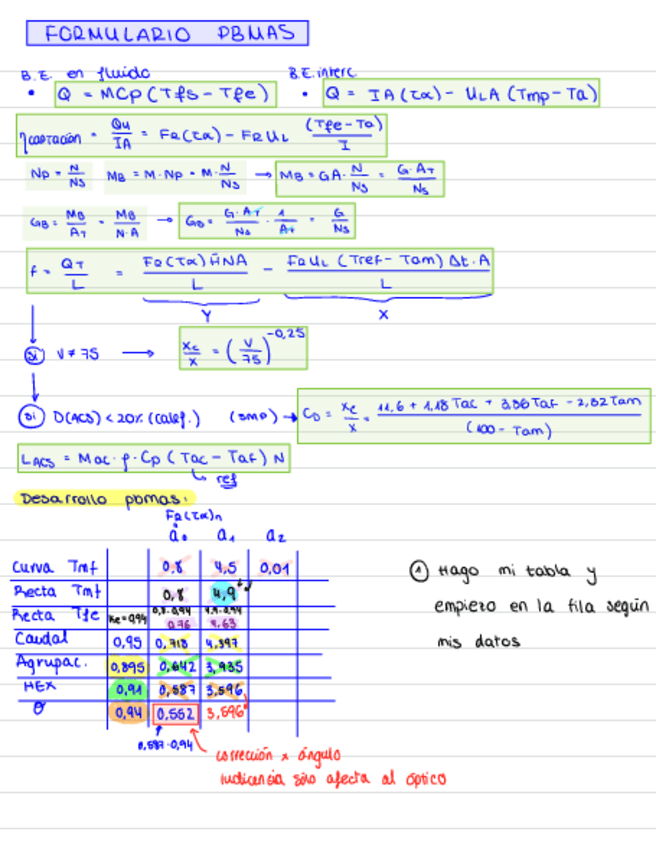 FORMULARIO PBMAS
B.E. en fluido
B.E. interc.
• Q = MCp (Tfs - Tfe)
• Q = IA(τα) - ULA (Tmp - Ta)
ηcaptación = Qu/IA = FR(τα) - FRUL (Tfe - Ta)/I
Np = N/Ns MB = M·Np = M·N/Ns → MB = GA·N/Ns = G·AT/Ns
GB = MB/AT = MB/N·A → GB = G·AT/Ns · 1/AT = G/Ns
f = QT/L = FR(τα) H̄NA/L - FRUL (Tref - Tam) Δt·A/L
Y X
Si V ≠ 75 → Xc/X = (V/75)^-0,25
Si D(ACS) < 20% (calef.) (SMA) → CD = Xc/X = 11,6 + 1,18 Tac + 3,86 Taf - 2,32 Tam/(100 - Tam)
LACS = Mac · ρ · Cp (Tac - Taf) N
ref
Desarrollo pbmas:
FR(τα)n
a0 a1 a2
Curva Tmf 0,8 4,5 0,01
Recta Tmf 0,8 4,9
Recta Tfe Ke=0,94 0,8·0,94 4,9·0,94
0,76 4,63
Caudal 0,95 0,718 4,397
Agrupac. 0,895 0,642 3,935
HEX 0,91 0,587 3,596
θ 0,94 0,552 3,596
0,587·0,94
corrección x ángulo
incidencia sólo afecta al óptico
① Hago mi tabla y
empiezo en la fila según
mis datos